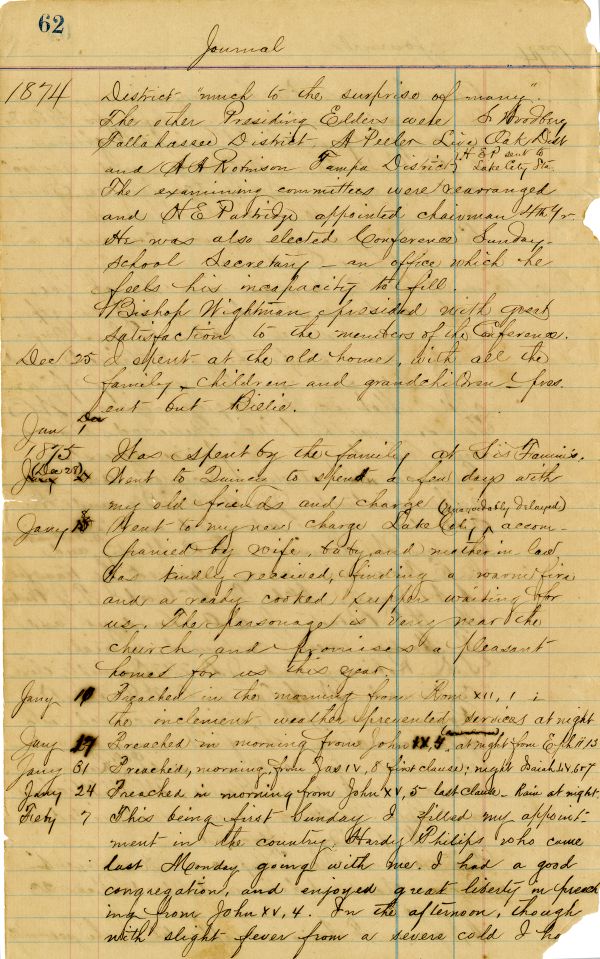 62
Journal
1874 District "much to the surprise of many".
The other Presiding Elders were S Woodbery
Tallahassee District, A Peeler Live Oak Dist
and A A Robinson Tampa District, (H E P sent to Lake City Sta.
The examining committees were rearranged
and H E Partridge appointed chairman 4th Yr.
He was also elected Conference Sunday-
school Secretary — an office which he
feels his incapacity to fill.
Bishop Wightman presided with great
satisfaction to the members of the Conference.
Dec 25 I spent at the old home, with all the
family, children and grandchildren — pres
ent but Billie.
Jan 1
1875 Was spent by the family at Sis Fannie's.
(Dec 28) Went to Quincy to spend a few days with
my old friends and charge (unavoidably delayed)
Jany Went to my new charge Lake City, accom-
panied by wife, baby, and mother in law,
was kindly received, finding a warm fire
and a ready cooked supper waiting for
us. The parsonage is very near the
church, and promises a pleasant
home for us this year.
Jany 10 Preached in the morning from Rom XII, 1;
the inclement weather prevented services at night
Jany 17 Preached in morning from John IX, 4, at night from Eph
Jany 31 Preached, morning, from Jas IV, 8 first clause; night Isaiah LV, 6 & 7
Jany 24 Preached in morning from John XV, 5 last clause — Rain at night
Feby 7 This being first Sunday I filled my appoint-
ment in the country, Hardy Philips who came
last Monday going with me. I had a good
congregation, and enjoyed great liberty in preach
ing from John XV, 4. In the afternoon, though
with slight fever from a severe cold I